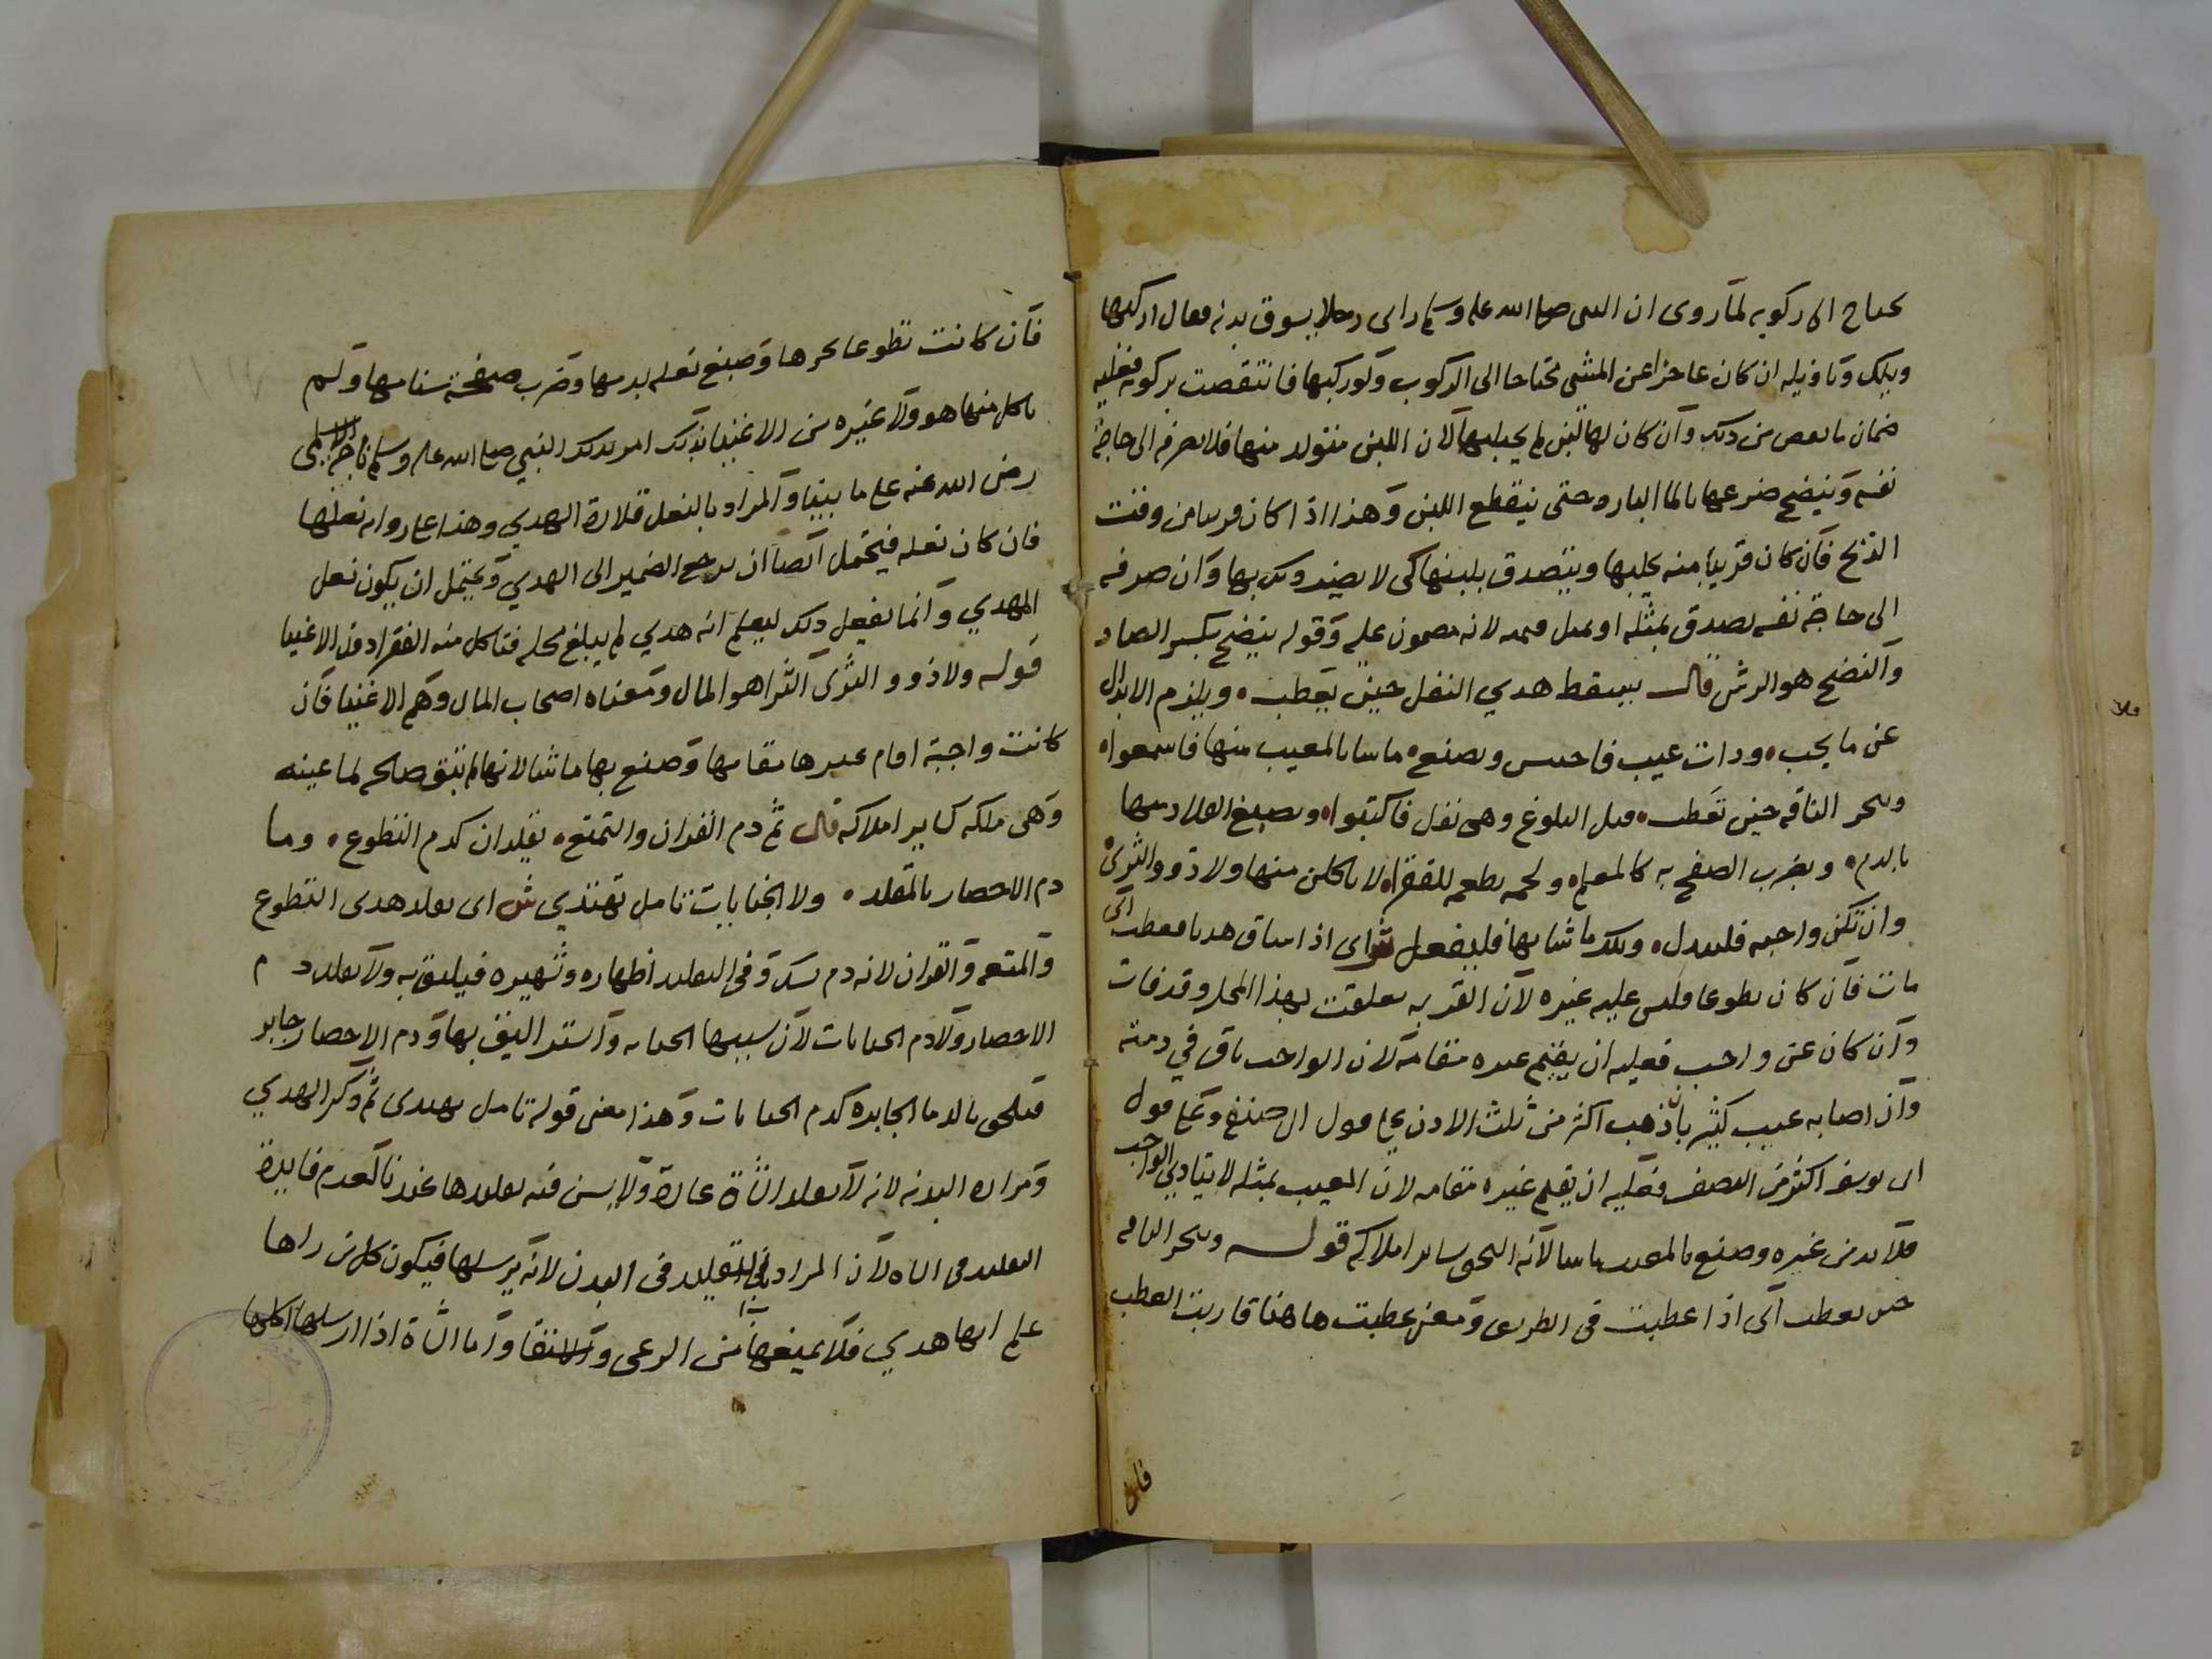 يحتاج الى ركوبه لما روى ان النبى صلى الله عليه وسلم راى رجلا يسوق بدنه فقال اركبها
ويلك وتاويله ان كان عاجزا عن المشى محتاجا الى الركوب ولو ركبها فانتقصت بركوبه فعليه
ضمان ما نقص من ذلك وان كان لها لبن لم يحلبها لان اللبن متولد منها فلا يصرفه الى حاجة
نفسه وينضح ضرعها بالما البارد حتى ينقطع اللبن وهذا اذا كان قريبا من وقت
الذبح فان كان قريبا منه يحلبها ويتصدق بلبنها كى لا يضر ذلك بها وان صرفه
الى حاجة نفسه تصدق بمثله او بمثل قيمته لانه مضمون عليه وقوله ينضح بكسر الضاد
والنضح هو الرش قال يسقط هدي النفل حين يعطب ويلزم الابدال
عن ما يجب وذات عيب فاحش ويصنع ما شا بالمعيب منها فاسمعوا
وينحر الناقه حين تعطب قبل البلوغ وهى نفل فاكتبوا ويصبغ القلاد منها
بالدم ويضرب الصفح به كالمعلم ولحمه يطعمه للفقراء لا ياكلن منها ولا ذوو الثرى
وان تكن واجبه فليبدل وتلك ما شا بها فليفعل ش اى اذا ساق هديا فعطب اى
مات فان كان تطوعا فليس عليه غيره لان القربه تعلقت بهذا المحل وقد فات
وان كان عن واجب فعليه ان يقيم غيره مقامه لان الواجب باق في ذمته
وان اصابه عيب كثير بان ذهب اكثر من ثلث الاذن على قول ابى حنيفة وعلى قول
ابى يوسف اكثر من النصف فعليه ان يقيم غيره مقامه لان المعيب بمثله لا يتادى الواجب
فلا بد من غيره وصنع بالمعيب ما شا لانه التحق بساير املاكه قوله وينحر الناقه
حين تعطب اى اذا عطبت فى الطريق ومعنى عطبت هاهنا قاربت العطب
فان
فان كانت تطوعا نحرها وصبغ نعله بدمها وضرب صفحة سنامها ولم
ياكل منها هو ولا غيره من الاغنيا بذلك امر بذلك النبي صلى الله عليه وسلم ناجية الاسلمى
رضى الله عنه على ما بينا والمراد بالنعل قلادة الهدي وهذا على رواية نعلها
فان كان نعله فيحتمل ايضا ان يرجع الضمير الى الهدي ويحتمل ان يكون نعل
المهدي وانما يفعل ذلك ليعلم انه هدي لم يبلغ محله فتاكل منه الفقرا دون الاغنيا
قوله ولا ذوو الثرى الثرا هو المال ومعناه اصحاب المال وهم الاغنيا فان
كانت واجبة اقام غيرها مقامها وصنع بها ما شا لانها لم تبق صالحه لما عينه
وهى ملكه كساير املاكه قال ثم دم القران والتمتع يقلدان كدم التطوع وما
دم الاحصار بالمقلد ولا الجنايات تامل تهتدي ش اى يقلد هدى التطوع
والمتعه والقران لانه دم نسك وفى التقليد اظهاره وتشهيره فيليق به ولا يقلد دم
الاحصار ولا دم الجنايات لان سببها الجنايه والستر اليق بها ودم الاحصار جابر
فيلحق بالدما الجابره كدم الجنايات وهذا معنى قوله تامل تهتدى ثم ذكر الهدي
ومراده البدنه لانه لا يقلد الشاة عادة ولا يسن فيه تقليدها عندنا لعدم فايدة
التقليد فى الشاه لان المراد بالتقليد فى البدن لانه يرسلها فيكون كل من راها
علم انها هدي فلا يمنعها من الرعى واما الشاة اذا ارسلها اكلها